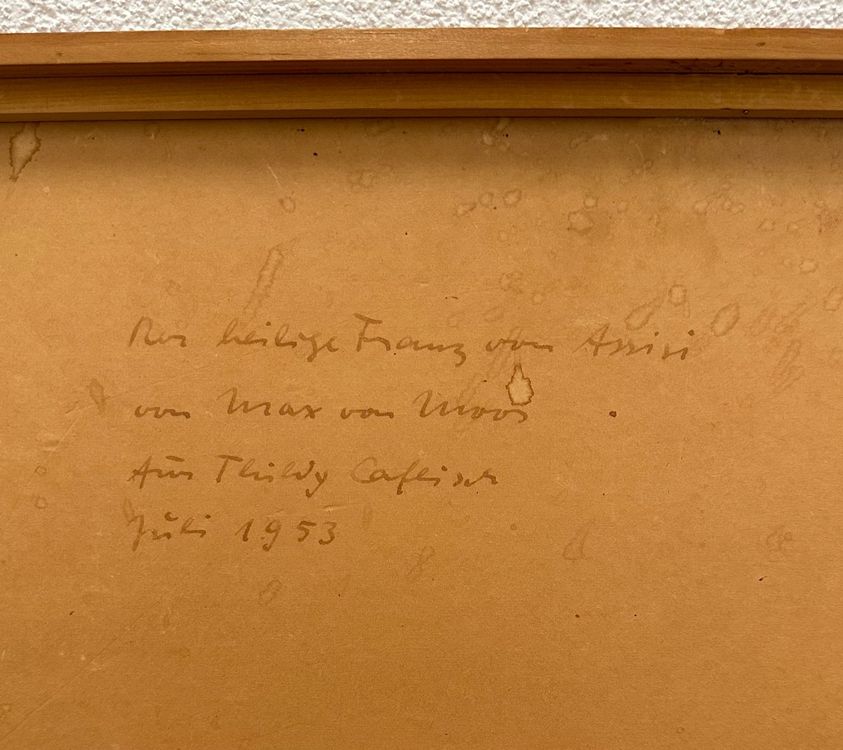 Der heilige Franz von Assisi
von Max von Moos
für Thildy Caflisch
Juli 1953